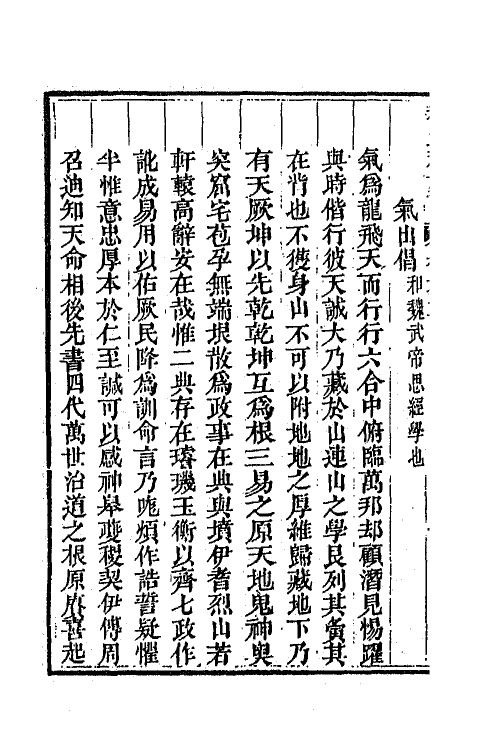 氣出倡和魏武帝思經學也
氣爲龍飛天而行行六合中俯臨萬邦却顧潛見惕躍
與時偕行彼天誠大乃藏於山連山之學艮列其夤其
在背也不獲身山不可以附地地之厚維歸藏地下乃
有天厥坤以先乾乾坤互爲根三易之原天地鬼神奥
突窟宅苞孕無端垠散爲政事在典與墳伊耆烈山若
軒轅高辭安在哉惟二典存在璿璣玉衡以齊七政作
訛成易用以佑厥民降爲訓命言乃咙煩作誥誓疑懼
半惟意忠厚本於仁至誠可以感神皋夔稷契伊傅周
召迪知天命相後先書四代萬世治道之根原放書起